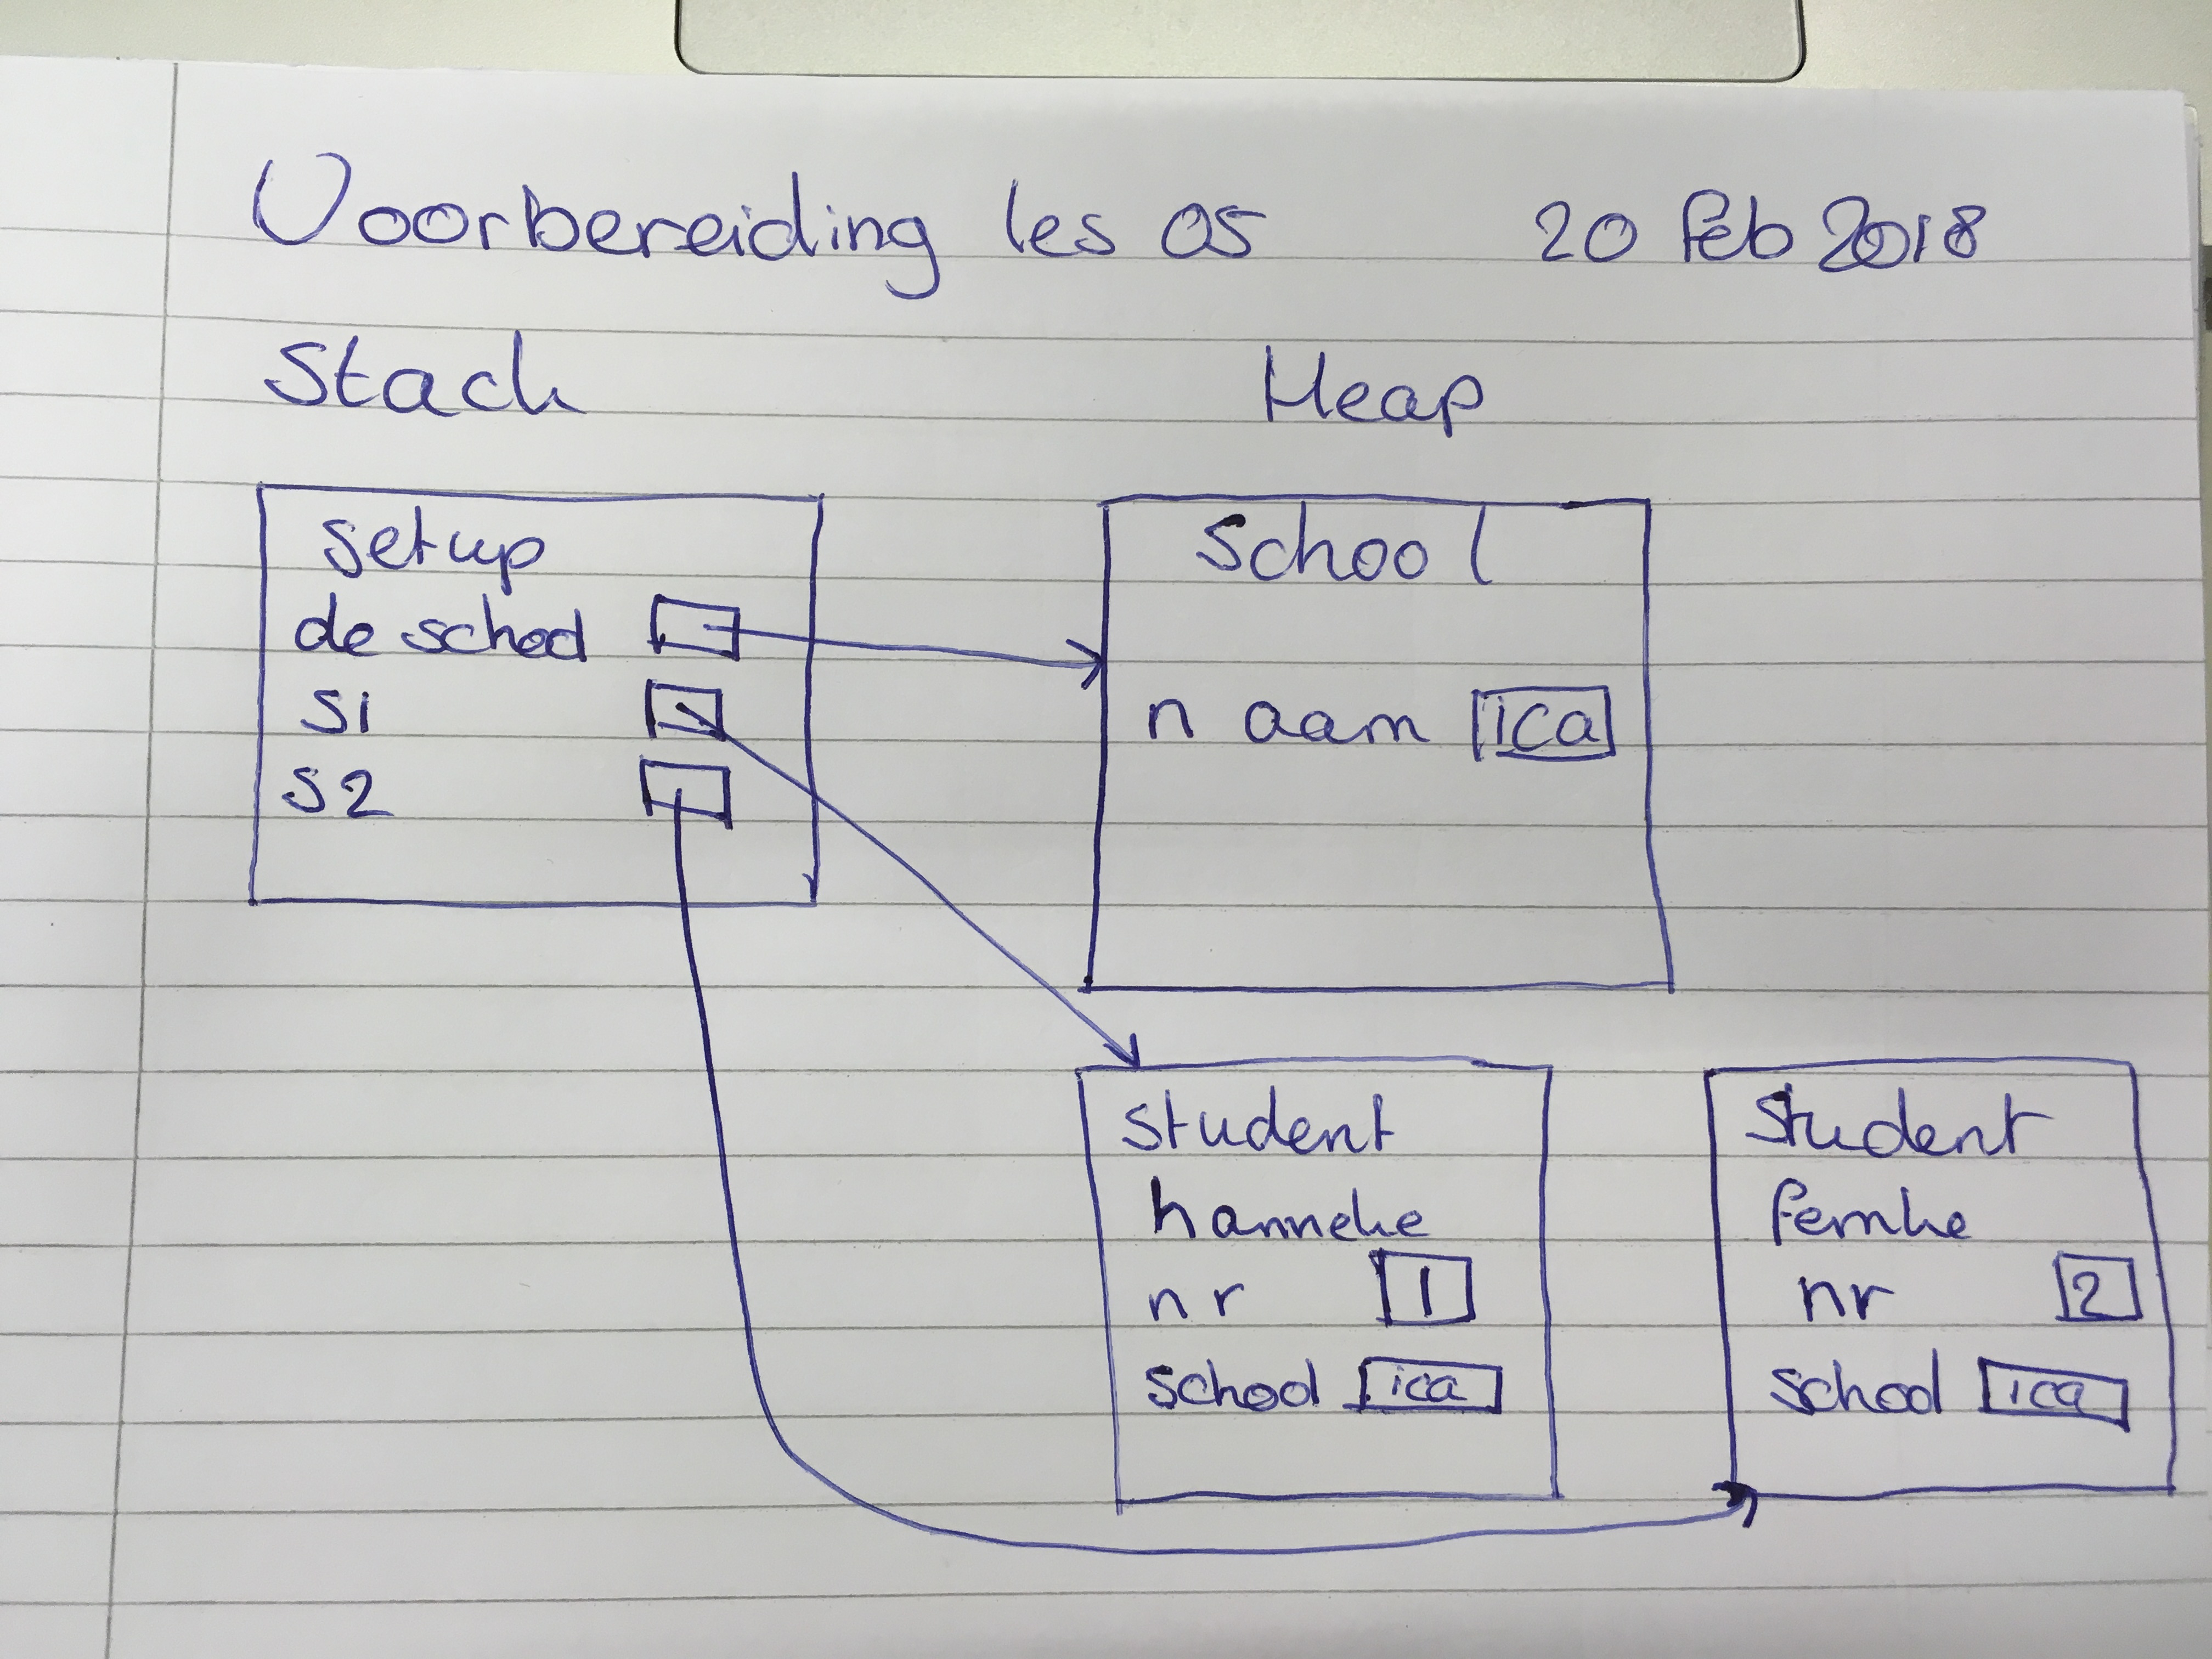 Voorbereiding les 05 20 feb 2018
Stack Heap
Setup
de school
S1
S2
School
naam ica
Student
hanneke
nr 1
school ica
Student
femke
nr 2
school ica